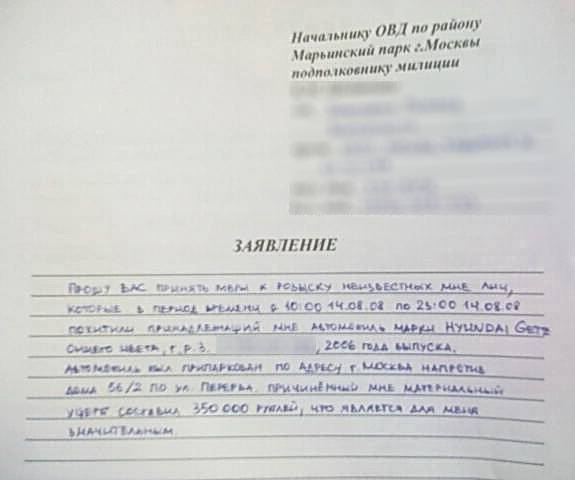 Начальнику ОВД по району
Марьинский парк г.Москвы
подполковнику милиции
ЗАЯВЛЕНИЕ
ПРОШУ ВАС ПРИНЯТЬ МЕРЫ К РОЗЫСКУ НЕИЗВЕСТНЫХ МНЕ ЛИЦ,
КОТОРЫЕ В ПЕРИОД ВРЕМЕНИ С 10:00 14.08.08 ПО 23:00 14.08.08
ПОХИТИЛИ ПРИНАДЛЕЖАЩИЙ МНЕ АВТОМОБИЛЬ МАРКИ HYUNDAI GETZ
СИНЕГО ЦВЕТА, Г.Р.З. , 2006 ГОДА ВЫПУСКА.
АВТОМОБИЛЬ БЫЛ ПРИПАРКОВАН ПО АДРЕСУ Г. МОСКВА НАПРОТИВ
ДОМА 56/2 ПО УЛ. ПЕРЕРВА. ПРИЧИНЁННЫЙ МНЕ МАТЕРИАЛЬНЫЙ
УЩЕРБ СОСТАВИЛ 350 000 РУБЛЕЙ, ЧТО ЯВЛЯЕТСЯ ДЛЯ МЕНЯ
ЗНАЧИТЕЛЬНЫМ.